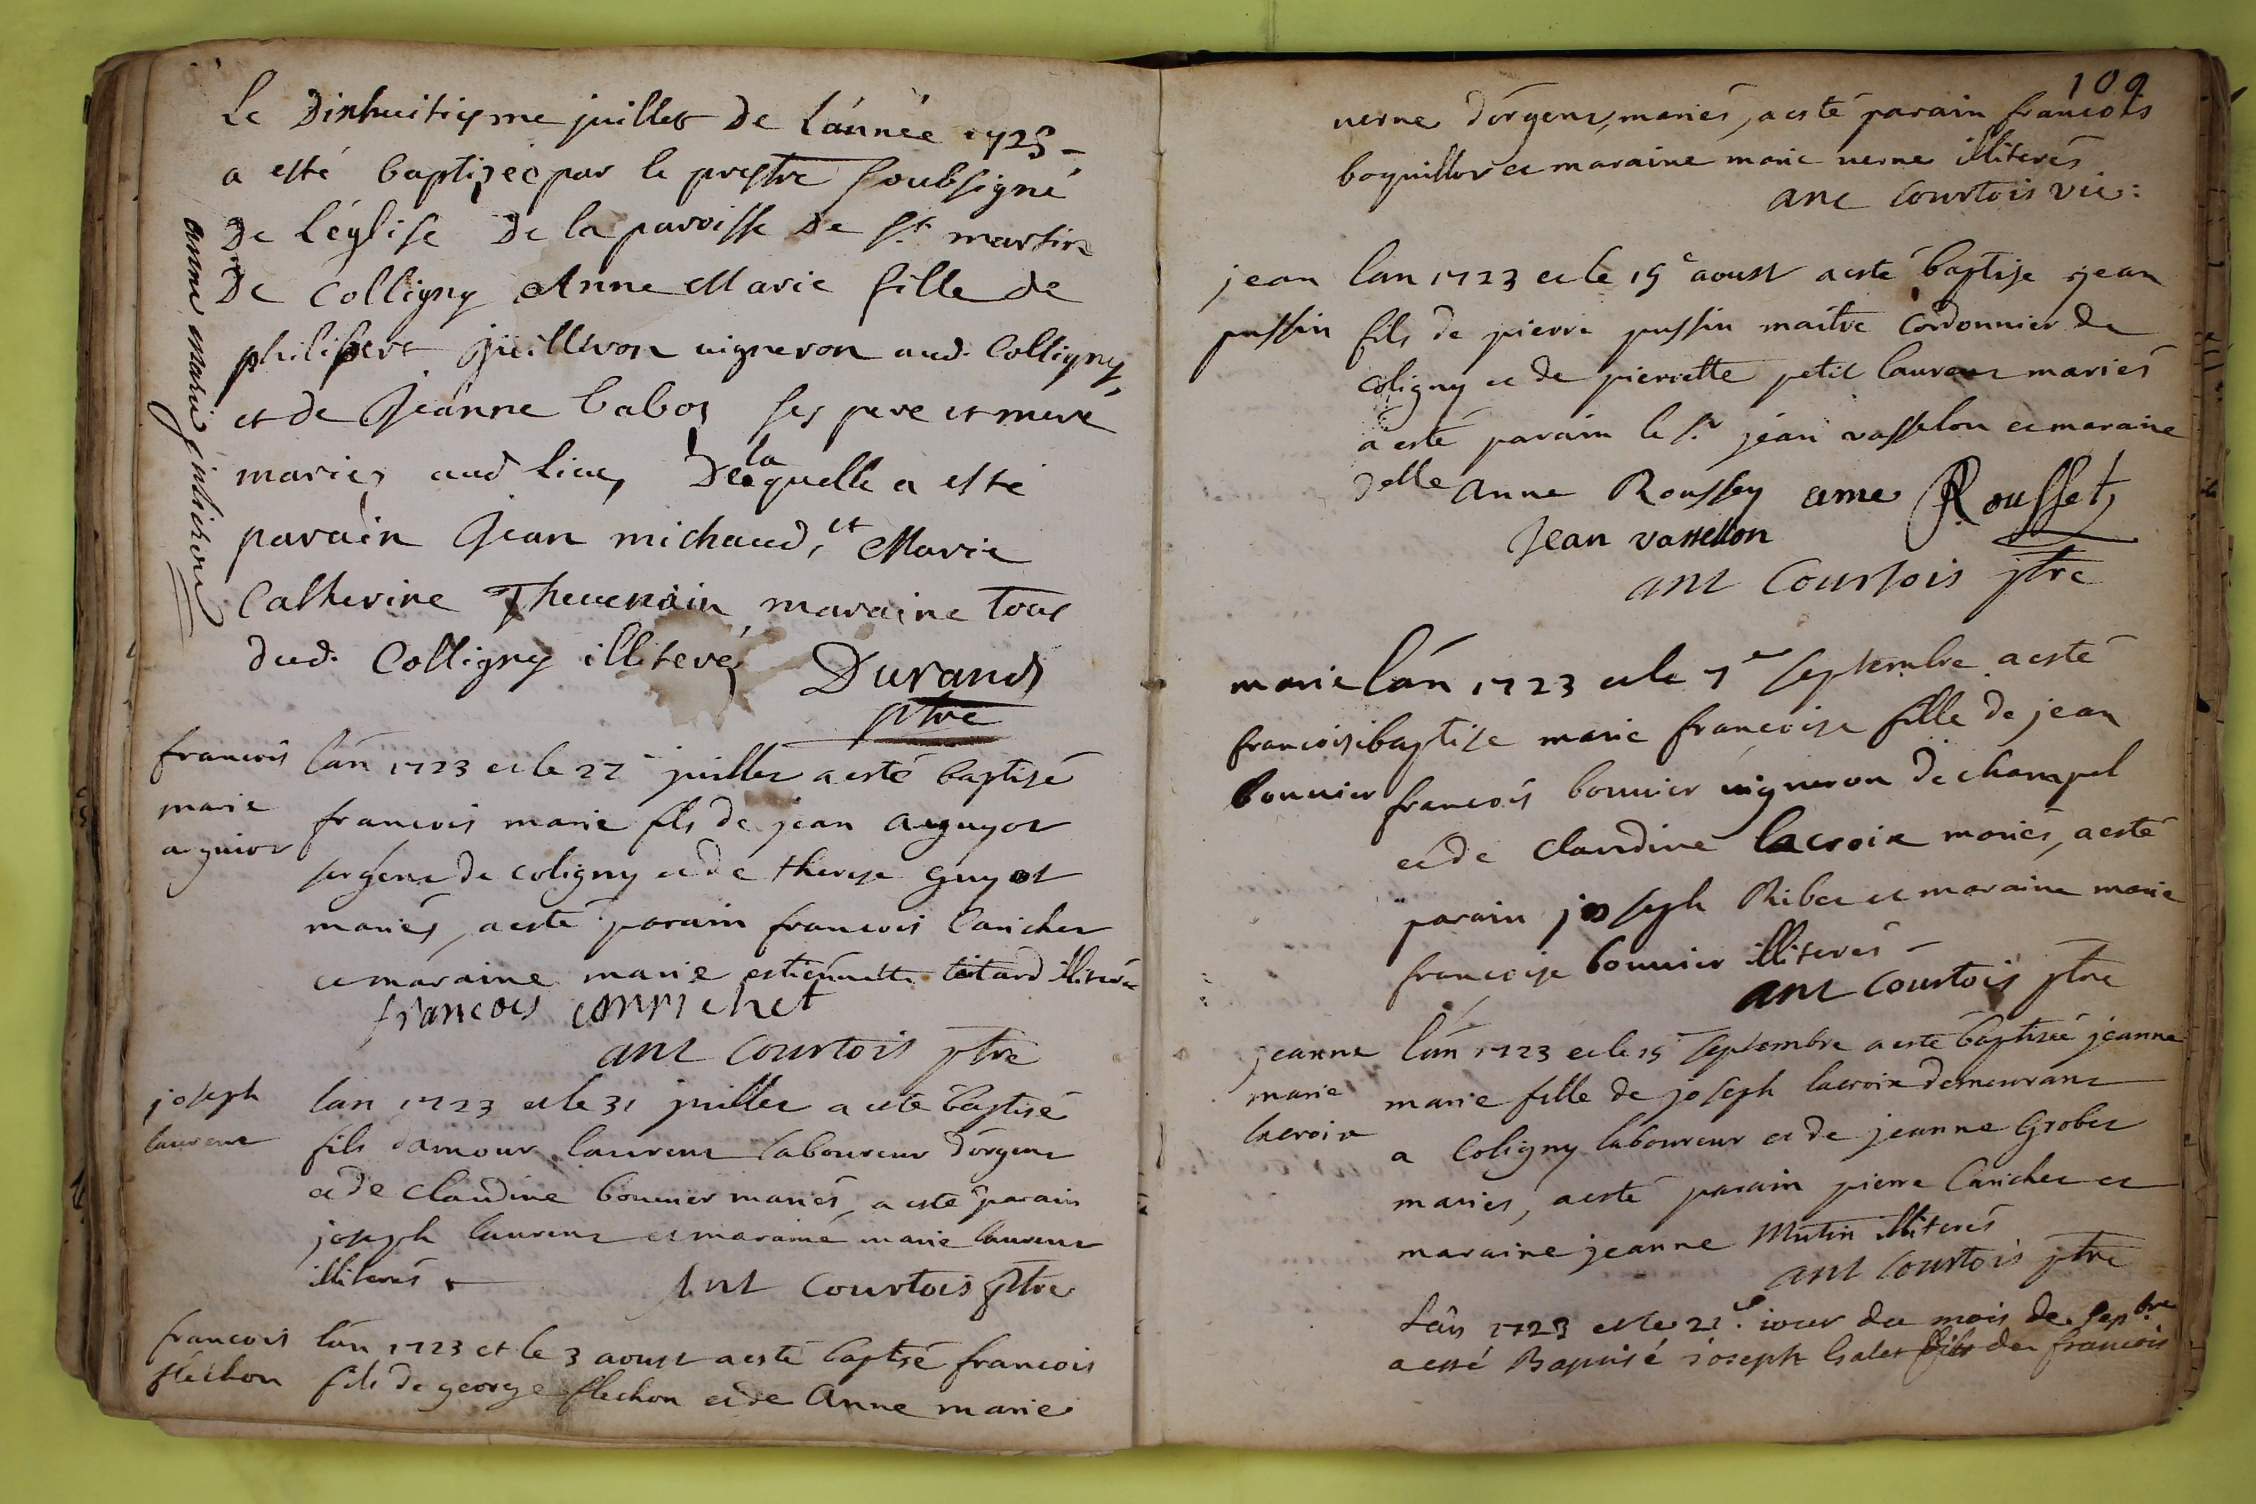 Le Dixhuitiesme juillet De L'année 1723
a esté baptizée par le prestre soubsigné
De L'église De la paroisse De St martin
De Colligny Anne Marie fille de
philibert juillieron uigneron aud. Colligny,
et de Jeanne baboz ses pere et mere
mariez aud lieu, De laquelle a esté
parain Jean michaud, et Marie
Catherine Theuenain maraine tous
dud. Colligny illiterez Durand
ptre
anne marie
francois
marie
aguior
lan 1723 et le 27 juillet a esté baptisé
francois marie fils de jean aguyot
sergent de coligny et de therese guyot
mariés, a esté parain francois Canichet
et maraine marie estiennette titard illiterée
francois cannichet
ant Courtois ptre
joseph
laurent
lan 1723 et le 31 juillet a esté baptisé
fils damour laurent laboureur dorgent
et de Claudine bouuier mariés, a esté parain
joseph laurent et maraine marie laurent
illiterés
Ant Courtois ptre
francois
flechon
lan 1723 et le 3 aoust a esté baptisé francois
fils de george flechon et de Anne marie
109
uerne dorgent, mariés, a esté parain francois
boquillot et maraine marie uerne illiterés
ant Courtois vic:
jean
pussin
lan 1723 et le 15e aoust a esté baptisé jean
fils de pierre pussin maitre Cordonnier de
coligny et de pierrette petit laurent mariés
a esté parain le sr jean vasselon et maraine
delle Anne Roussey ame Rousset
Jean vassellon
ant Courtois ptre
marie
francoise
bouuier
lan 1723 et le 7me septembre a esté
baptisé marie francoise fille de jean
francois bouuier uigneron de champel
et de claudine lacroix mariés, a esté
parain joseph Ribet et maraine marie
francoise bouuier illiterés
ant Courtois ptre
jeanne
marie
lacroix
lan 1723 et le 15 septembre a esté baptisée jeanne
marie fille de joseph lacroix demeurant
a Coligny laboureur et de jeanne Grobet
mariés, a esté parain pierre Canichet et
maraine jeanne Mutin illiterés
ant Courtois ptre
Lan 1723 et le 21e iour du mois de Sepbre
a esté Baptisé ioseph Galet fils de francois